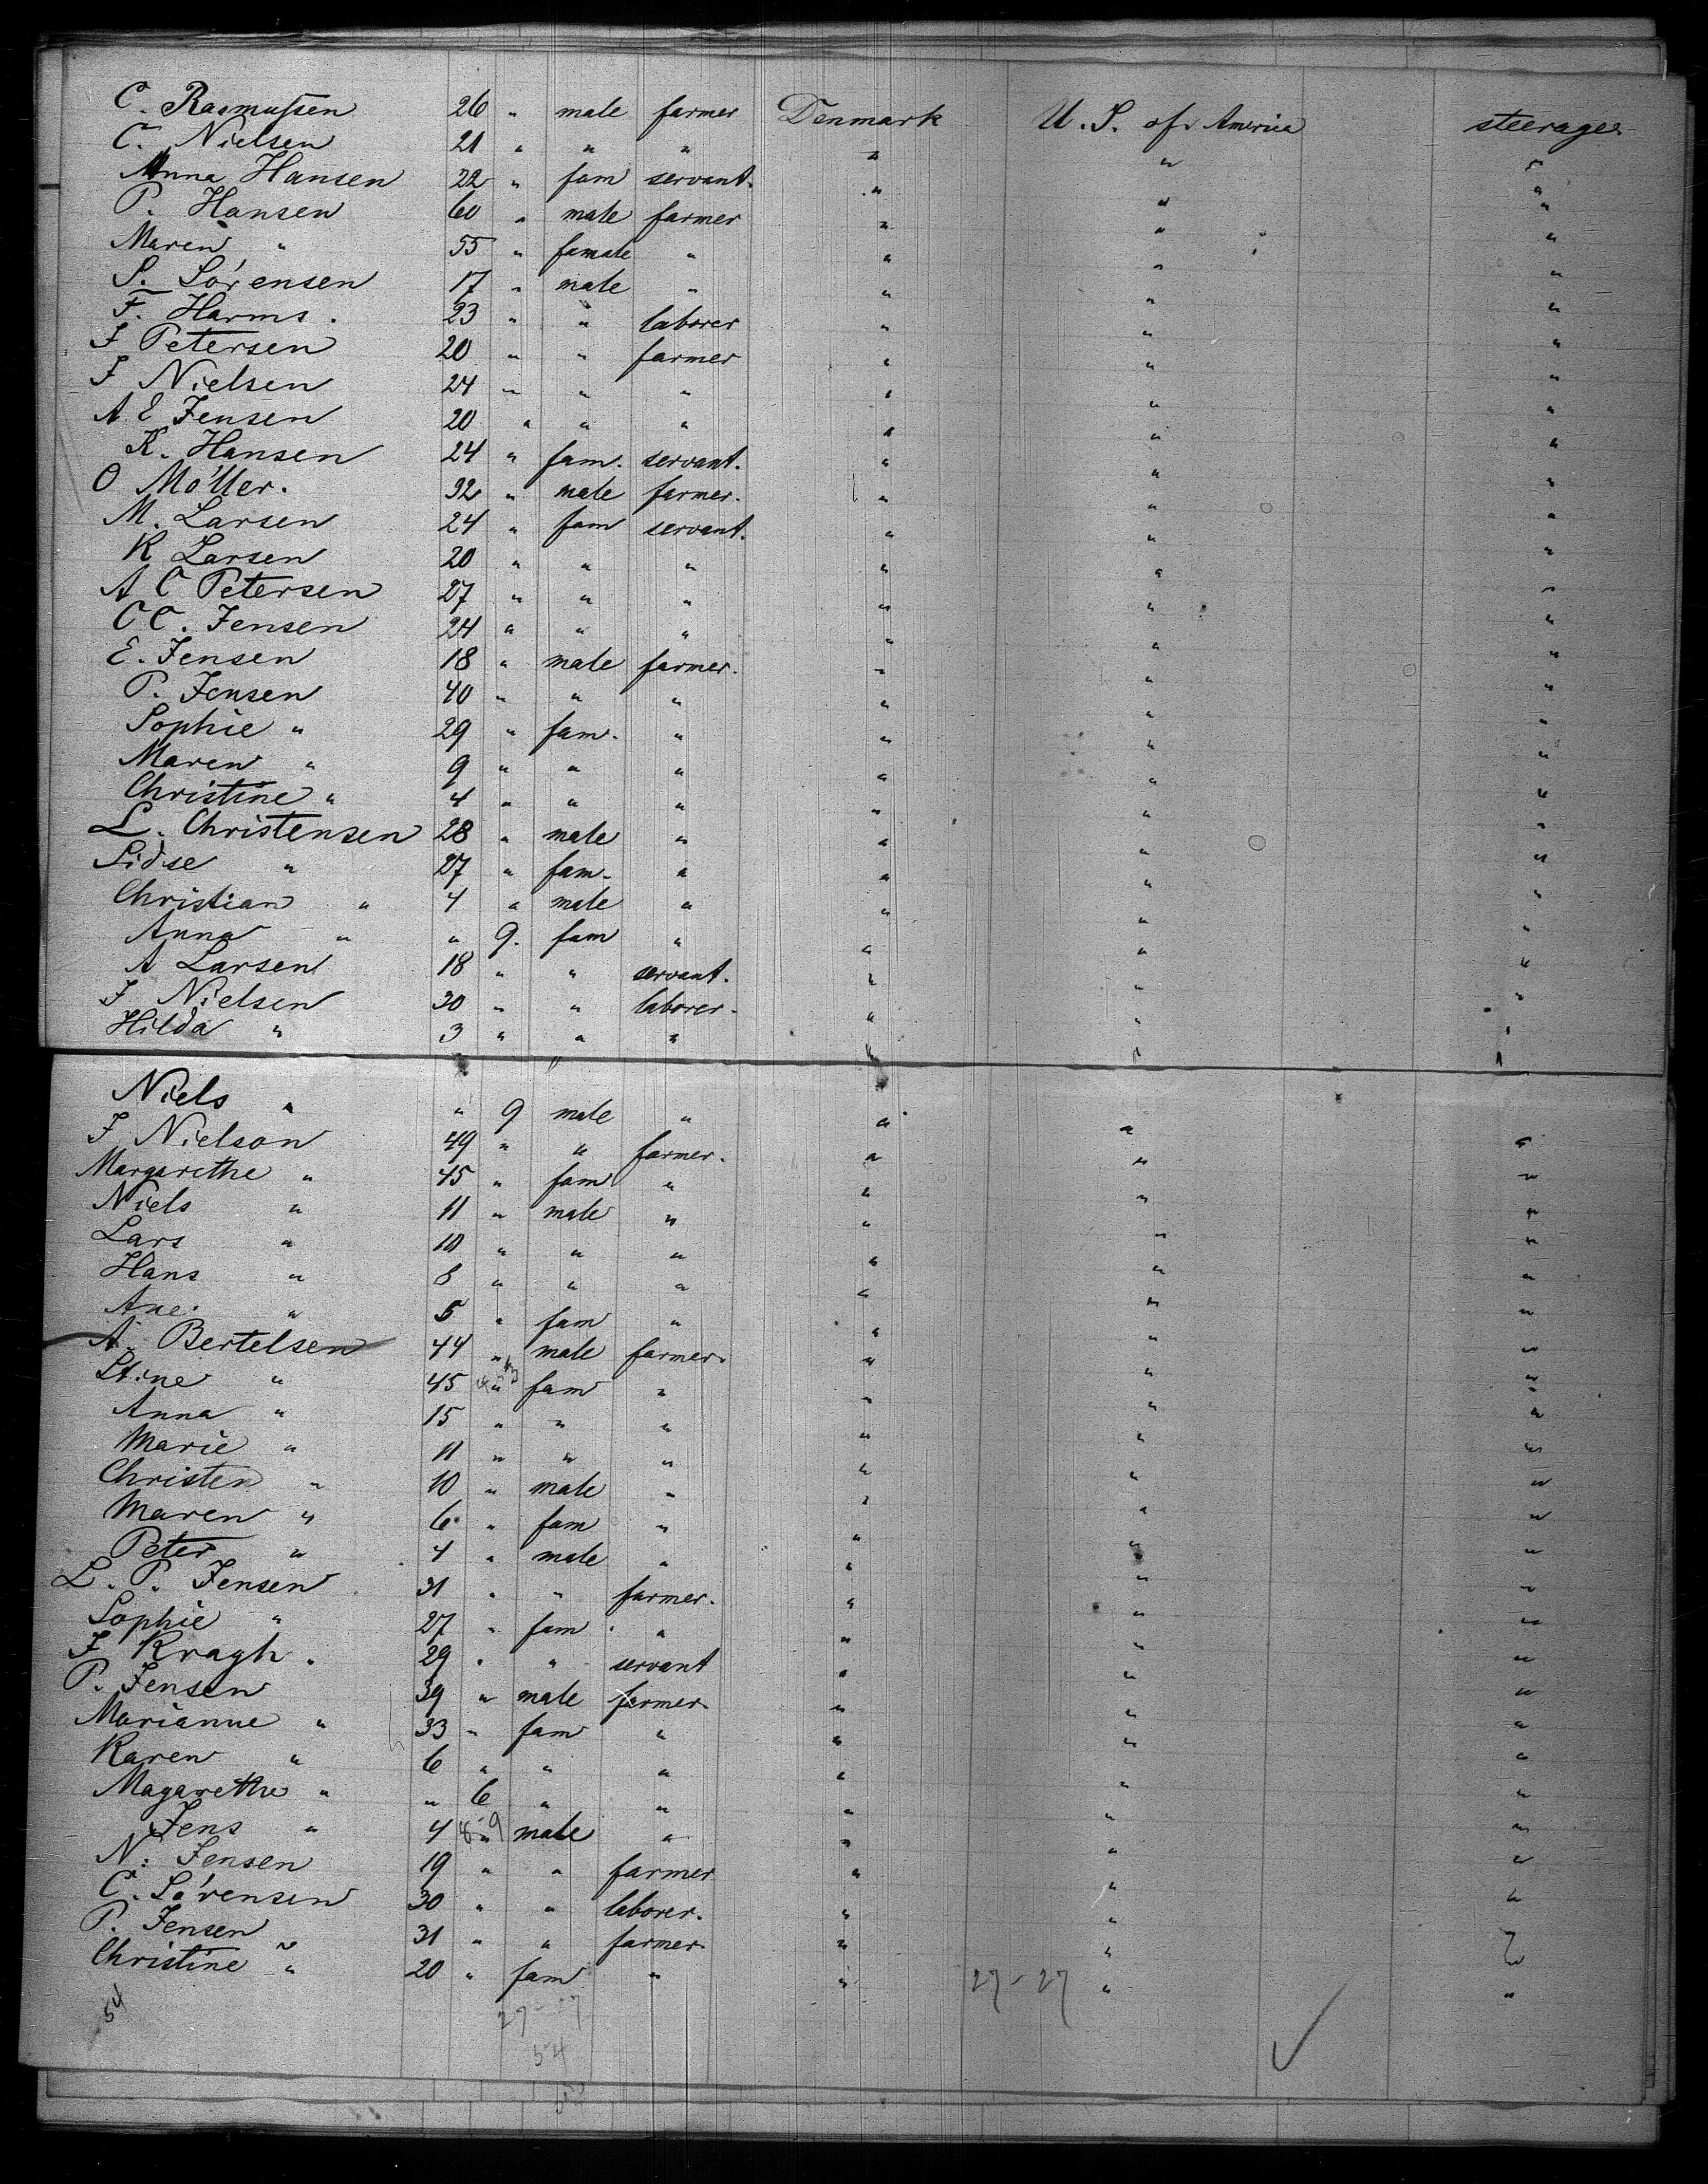 C. Rasmussen 26 " male farmer Denmark U. S. of America steerage
C. Nielsen 21 " " " " " "
Anna Hansen 22 " fam servant. " " "
P. Hansen 60 " male farmer " " "
Maren " 55 " famale " " " "
S. Sörensen 17 " male " " " "
F. Harms. 23 " " laborer " " "
J Petersen 20 " " farmer " " "
J Nielsen 24 " " " " " "
A. E Jensen 20 " " " " " "
K. Hansen 24 " fam. servant. " " "
O Möller. 32 " male farmer. " " "
M. Larsen 24 " fam servant. " " "
K Larsen 20 " " " " " "
A C Petersen 27 " " " " " "
C C. Jensen 24 " " " " " "
E. Jensen 18 " male farmer. " " "
P. Jensen 40 " " " " " "
Sophie " 29 " fam. " " " "
Maren " 9 " " " " " "
Christine " 4 " " " " " "
L. Christensen 28 " male " " " "
Sidse " 27 " fam. " " " "
Christian " 4 " male " " " "
Anna " " 9. fam " " " "
A Larsen 18 " " servant. " " "
J Nielsen 30 " " laborer. " " "
Hilda " 3 " " " " " "
Niels " " 9 male " " " "
J Nielson 49 " " farmer. " " "
Margarethe " 45 " fam " " " "
Niels " 11 " male " " " "
Lars " 10 " " " " " "
Hans " 8 " " " " " "
Ane. " 5 " fam " " " "
A. Bertelsen 44 " male farmer. " " "
Stine " 45 " fam " " " "
Anna " 15 " " " " " "
Marie " 11 " " " " " "
Christen " 10 " male " " " "
Maren " 6 " fam " " " "
Peter " 4 " male " " " "
L. P. Jensen 31 " " farmer. " " "
Sophie " 27 " fam " " " "
J Kragh. 29 " " servant " " "
P. Jensen 39 " male farmer. " " "
Marianne " 33 " fam " " " "
Karen " 6 " " " " " "
Magarethe " " 6 " " " " "
Jens " 4 " male " " " "
N. Jensen 19 " " farmer " " "
C. Sörensen 30 " " laborer. " " "
P. Jensen 31 " " farmer. " " "
Christine " 20 " fam " " 27-27 " "
54
54